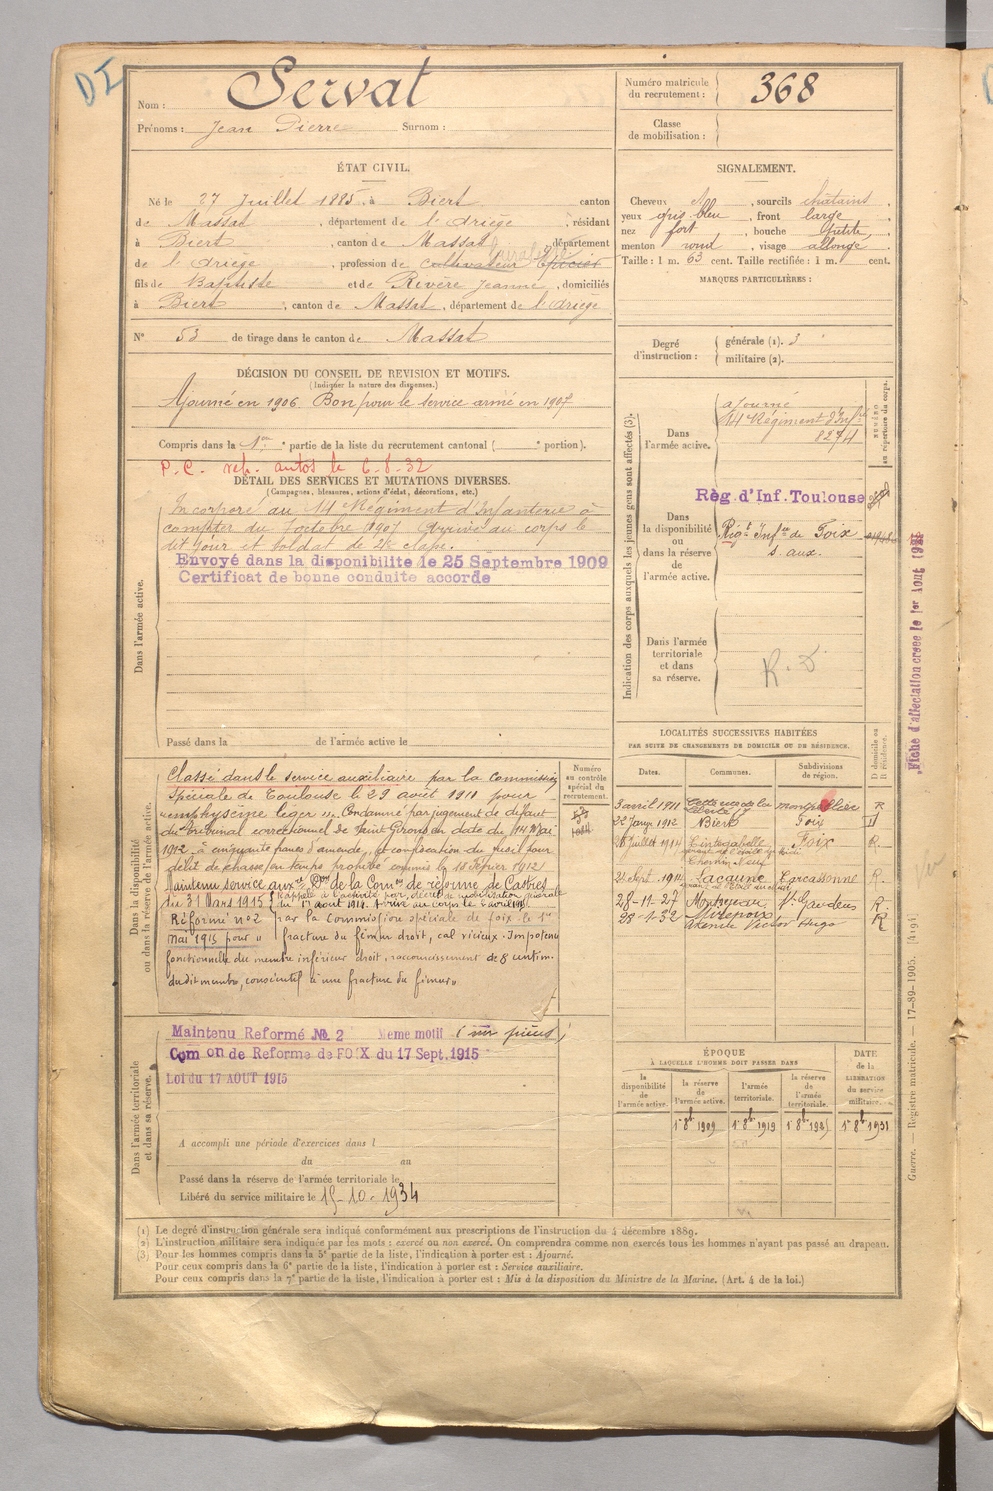 D I
Nom : Servat
Prénoms : Jean Pierre Surnom :
Numéro matricule du recrutement : 368
Classe de mobilisation :
ÉTAT CIVIL.
Né le 27 Juillet 1885, à Biert canton
de Massat, département de l'Ariège, résidant
à Biert, canton de Massat, département
de l'Ariège, profession de cultivateur Épicier
fils de Baptiste et de Rivère Jeanne, domiciliés
à Biert, canton de Massat, département de l'Ariège
N° 53 de tirage dans le canton de Massat
SIGNALEMENT.
Cheveux , sourcils châtains
yeux gris bleu, front large
nez fort, bouche petite
menton rond, visage allongé
Taille : 1 m. 63 cent. Taille rectifiée : 1 m. cent.
MARQUES PARTICULIÈRES :
Degré d'instruction : générale (1). 3
militaire (2).
DÉCISION DU CONSEIL DE REVISION ET MOTIFS.
(Indiquer la nature des dispenses.)
Ajourné en 1906 Bon pour le service armé en 1907
Compris dans la 1ère partie de la liste du recrutement cantonal ( e portion).
P.C. reh. autos le 6-8-32
DÉTAIL DES SERVICES ET MUTATIONS DIVERSES.
(Campagnes, blessures, actions d'éclat, décorations, etc.)
Dans l'armée active.
Incorporé au 14e Régiment d'Infanterie à
compter du 7 octobre 1907 Arrivé au corps le
dit jour et soldat de 2e classe.
Envoyé dans la disponibilite le 25 Septembre 1909
Certificat de bonne conduite accorde
Passé dans la de l'armée active le
Indication des corps auxquels les jeunes gens sont affectés (3).
NUMÉRO au répertoire du corps.
Dans l'armée active.
ajourné
14 Régiment d'Infrie
8274
Dans la disponibilité ou dans la réserve de l'armée active.
Règ. d'Inf. Toulouse
Régt Infie de Foix
s. aux.
Dans l'armée territoriale et dans sa réserve.
R. D
Fiche d'affectation creée le 1er Aout
Dans la disponibilité ou dans la réserve de l'armée active.
Classé dans le service auxiliaire par la Commission
Spéciale de Toulouse le 29 août 1911 pour
"emphysème léger". Condamné par jugement de défaut
du tribunal correctionnel de Saint Girons en date du 14 Mai
1912 à cinquante francs d'amende, et confiscation du fusil pour
délit de chasse en temps prohibé commis le 18 Février 1912
Maintenu service auxre Don de la Comon de réforme de Castres
du 31 Mars 1915 Rappelé à l'activité par décret de mobilisation générale
du 1er août 1914. Arrivé au corps le 6 avril 1915
Réformé n° 2 par la Commission spéciale de foix le 1er
mai 1915 pour " fracture du fémur droit, cal vicieux. Impotence
fonctionnelle du membre inférieur droit, raccourcissement de 8 centim.
dudit membre, consécutif à une fracture du fémur"
Numéro au contrôle spécial du recrutement.
LOCALITÉS SUCCESSIVES HABITÉES
PAR SUITE DE CHANGEMENTS DE DOMICILE OU DE RÉSIDENCE.
Dates. Communes. Subdivisions de région. D domicile ou R résidence.
3 avril 1911 Cette rue de la liberté montpellier R
22 Janv 1912 Biert Foix D
26 Juillet 1914 Cintegabelle Foix R.
Chemin Neuf
21 Sept. 1914 Lacaune Carcassonne R.
28-11-27 Montréjeau St Gaudens R.
28-1-32 Mirepoix R
Avenue Victor Hugo
Dans l'armée territoriale et dans sa réserve.
Maintenu Reformé № 2 Meme motif (sur pièces)
Com on de Reforme de FOIX du 17 Sept. 1915
Loi du 17 AOUT 1915
A accompli une période d'exercices dans l
du au
Passé dans la réserve de l'armée territoriale le
Libéré du service militaire le 15-10-1934
ÉPOQUE
À LAQUELLE L'HOMME DOIT PASSER DANS
DATE de la LIBÉRATION du service militaire.
la disponibilité de l'armée active. la réserve de l'armée active. l'armée territoriale. la réserve de l'armée territoriale.
1er 8bre 1909 1er 8bre 1919 1er 8bre 1925 1er 8bre 1931
Guerre. — Registre matricule. — 17-89-1905. [4194]
(1) Le degré d'instruction générale sera indiqué conformément aux prescriptions de l'instruction du 4 décembre 1889.
(2) L'instruction militaire sera indiquée par les mots : exercé ou non exercé. On comprendra comme non exercés tous les hommes n'ayant pas passé au drapeau.
(3) Pour les hommes compris dans la 5e partie de la liste, l'indication à porter est : Ajourné.
Pour ceux compris dans la 6e partie de la liste, l'indication à porter est : Service auxiliaire.
Pour ceux compris dans la 7e partie de la liste, l'indication à porter est : Mis à la disposition du Ministre de la Marine. (Art. 4 de la loi.)